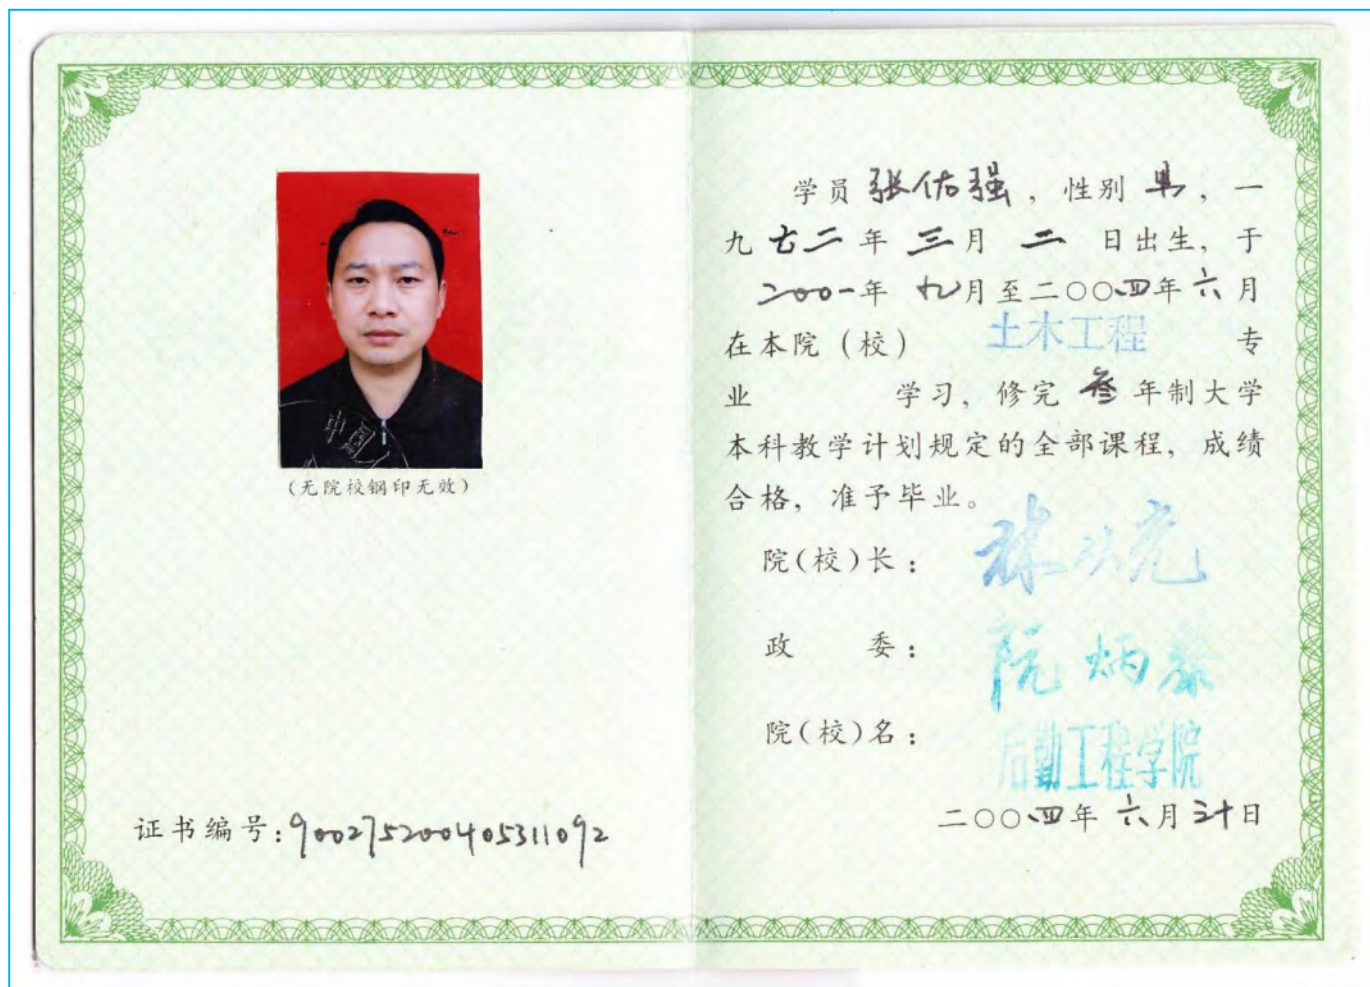 (无院校钢印无效)
证书编号:900275200405311092
学员张佑强，性别男，一
九七二年三月二日出生，于
二〇〇一年九月至二〇〇四年六月
在本院（校）土木工程专
业学习，修完叁年制大学
本科教学计划规定的全部课程，成绩
合格，准予毕业。
院(校)长：
政委：阮炳黎
院(校)名：后勤工程学院
二〇〇四年六月三十日